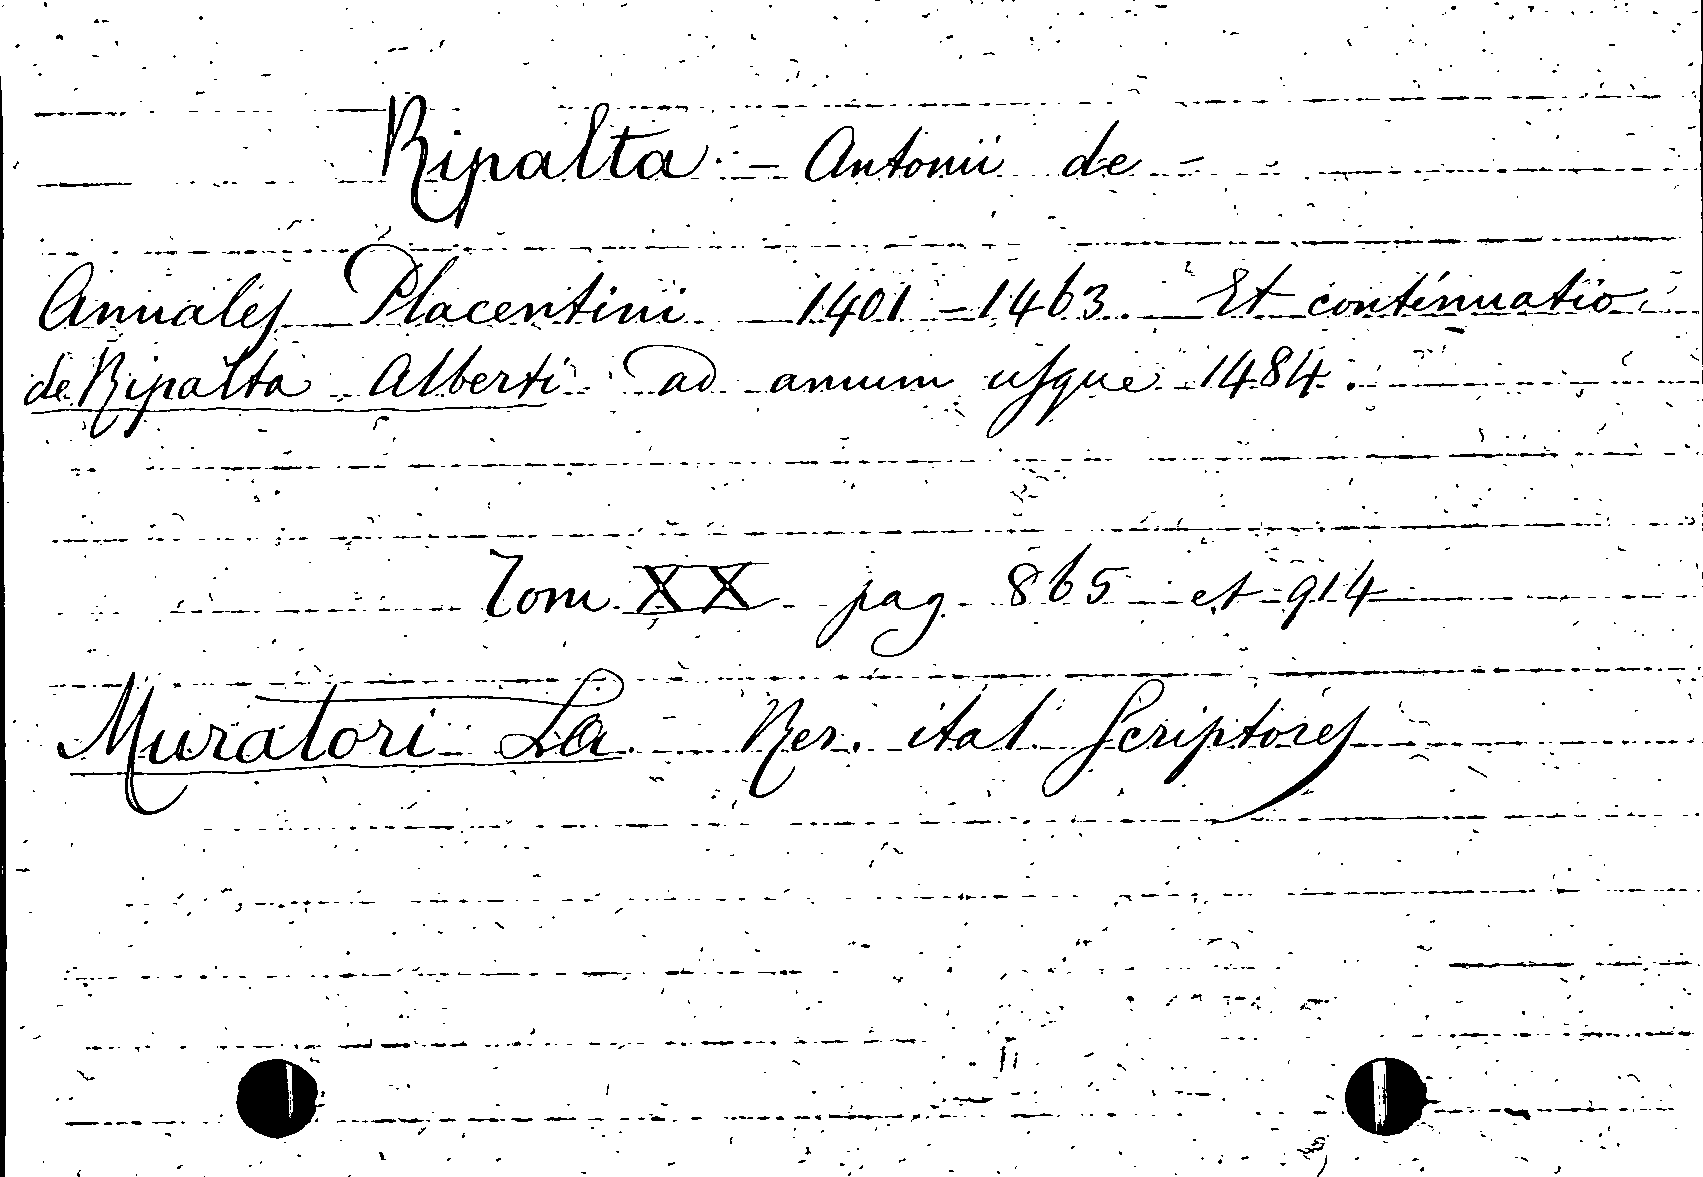 Ripalta - Antonii de -
Annales Placentini 1401 - 1463. Et continuatio
de Ripalta Alberti ad annum usque 1484.
Tom. XX pag. 865 et 914
Muratori La. Rer. ital. Scriptores